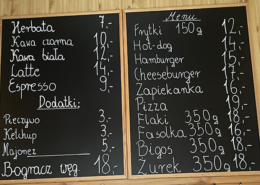 Herbata 7,-
Kawa czarna 10,-
Kawa biała 12,-
Latte 14,-
Espresso 9,-
Dodatki:
Pieczywo 3,-
Ketchup 3,-
Majonez 5,-
Bogracz węg. 18,-
Menu
Frytki 150g 12,-
Hot-dog 14,-
Hamburger
Cheeseburger
Zapiekanka 16,-
Pizza 19,-
Flaki 350g 18,-
Fasolka 350g
Bigos 350g
Żurek 350g 18,-